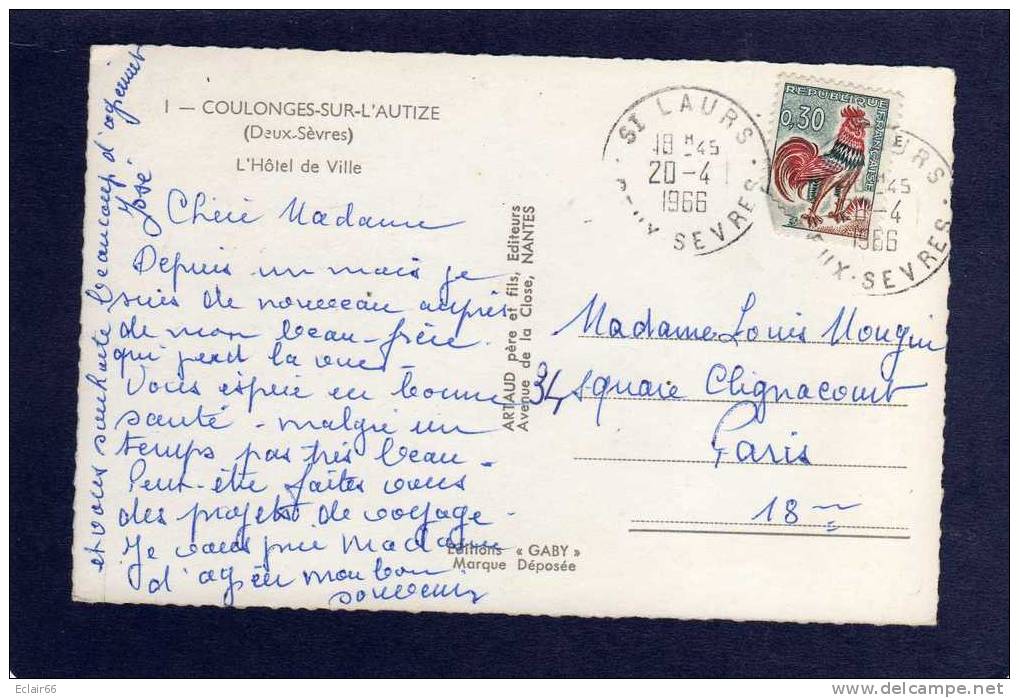 1 — COULONGES-SUR-L'AUTIZE
(Deux-Sèvres)
L'Hôtel de Ville
Chère Madame
Depuis un mois je
suis de nouveau auprès
de mon beau-frère
qui perd la vue -
Vous espère en bonne
santé - malgré un
temps pas très beau -
Peut-être faites vous
des projets de voyage -
Je vous prie Madame
d'agréer mon bon
souvenir
et vous souhaite beaucoup d'agrément
José
ARTAUD père et fils, Editeurs
Avenue de la Close, NANTES
Editions « GABY »
Marque Déposée
ST LAURS
18 H 45
20-4
1966
DEUX-SEVRES
REPUBLIQUE FRANÇAISE
0,30
URS
45
-4
1966
UX-SEVRES
Madame Louis Mougin
34 square Clignacourt
Paris
18me
Eclair66
www.delcampe.net